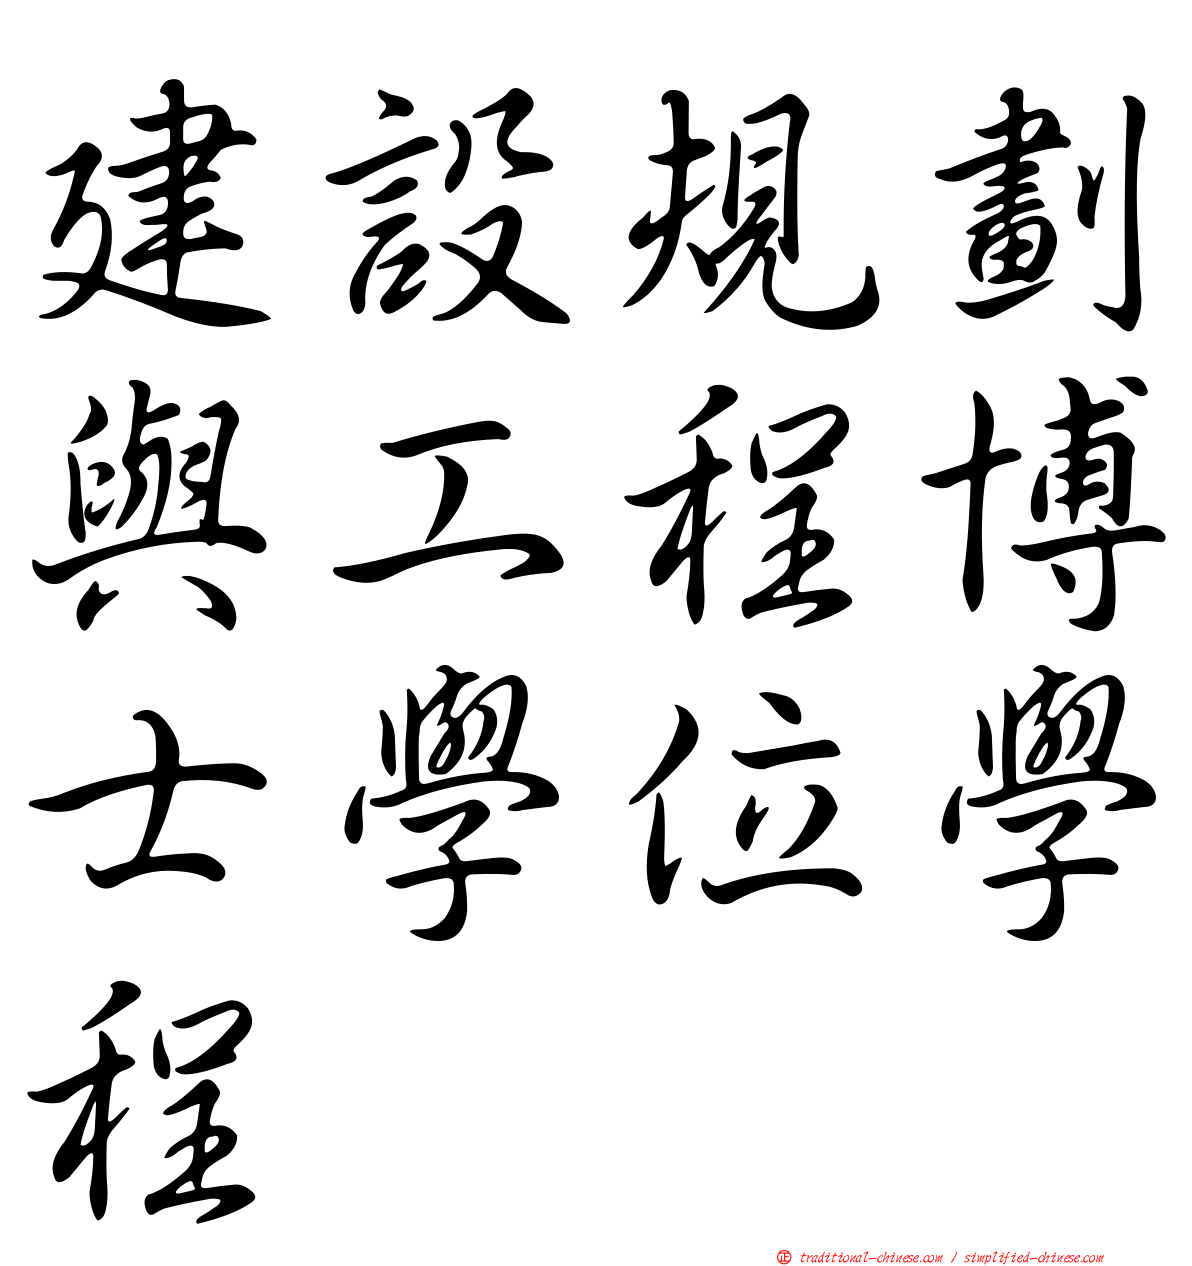 建設規劃
與工程博
士學位學
程
正 traditional-chinese.com / simplified-chinese.com